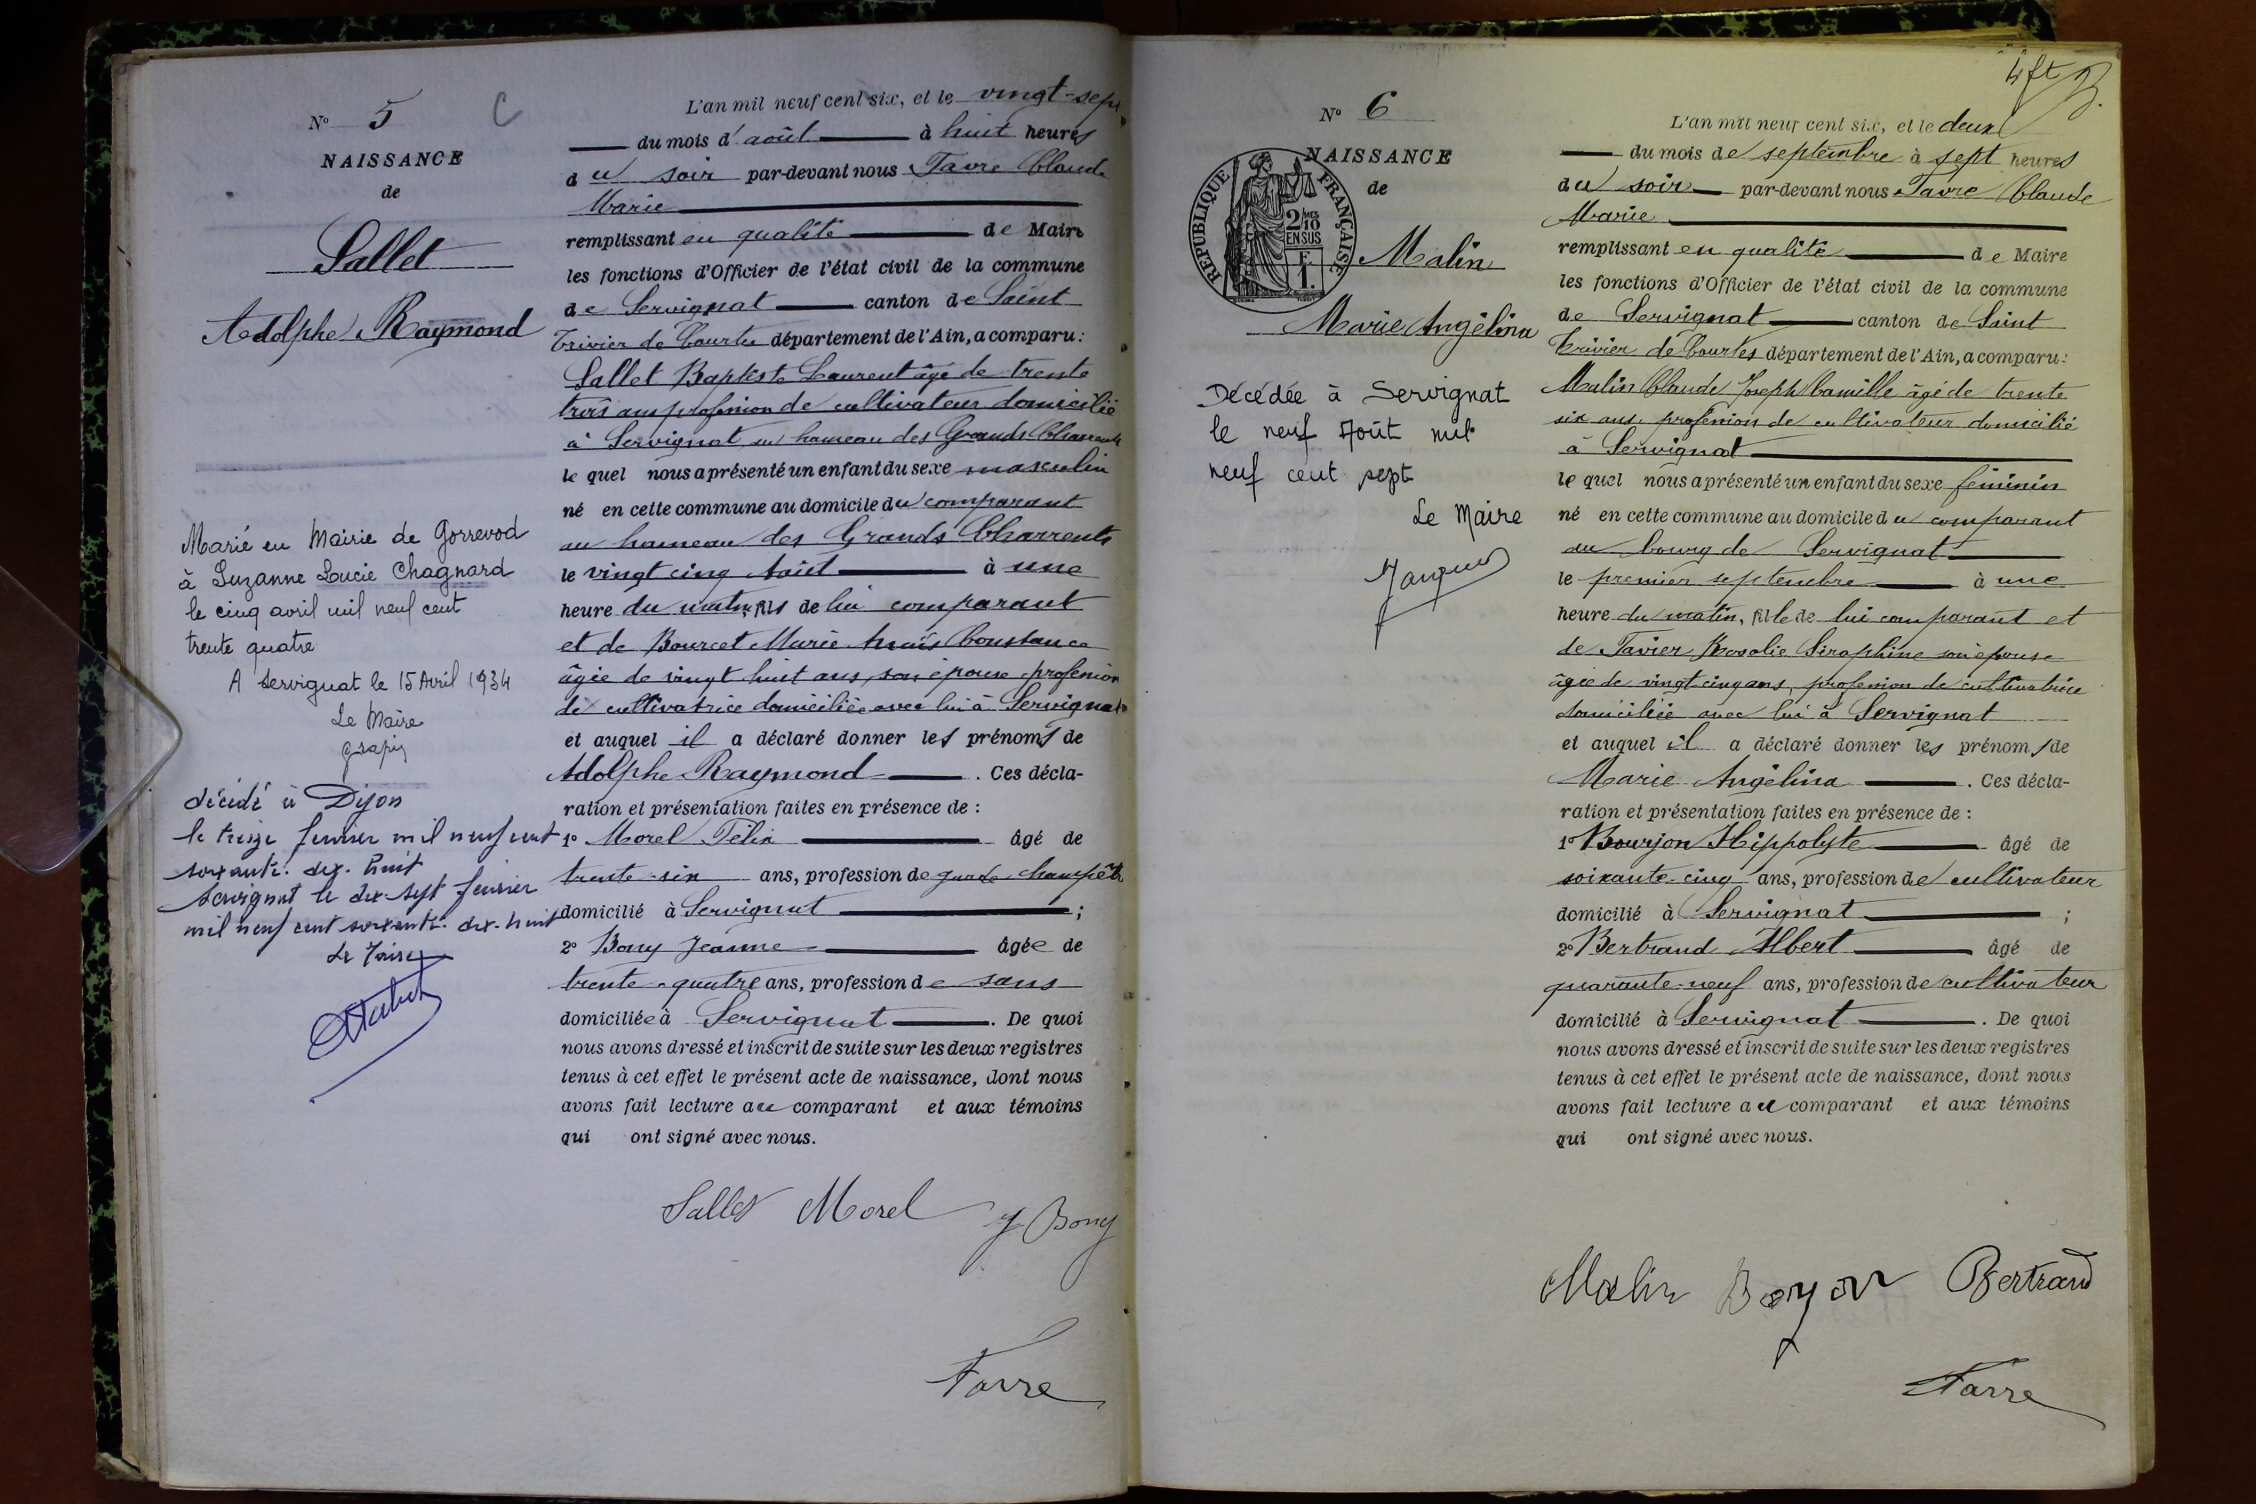 N° 5
C
NAISSANCE
de
Sallet
Adolphe Raymond
Marié en Mairie de Gorrevod
à Suzanne Lucie Chagnard
le cinq avril mil neuf cent
trente quatre
A Servignat le 15 Avril 1934
Le Maire
décédé à Dijon
le treize fevrier mil neuf cent
soixante-dix-huit
Servignat le dix-sept fevrier
mil neuf cent soixante-dix-huit
Le Maire
L'an mil neuf cent six, et le vingt-sept
du mois d'août à huit heures
du soir par-devant nous Favre Claude
Marie
remplissant en qualité de Maire
les fonctions d'Officier de l'état civil de la commune
de Servignat canton de Saint
Trivier de Courtes département de l'Ain, a comparu:
Sallet Baptiste Laurent âgé de trente
trois ans profession de cultivateur domicilié
à Servignat au hameau des Grands Charrents
le quel nous a présenté un enfant du sexe masculin
né en cette commune au domicile du comparant
au hameau des Grands Charrents
le vingt cinq Août à une
heure du matin, fils de lui comparant
et de Bourcet Marie Anaïs Constance
âgée de vingt huit ans, son épouse profession
de cultivatrice domiciliée avec lui à Servignat
et auquel il a déclaré donner les prénoms de
Adolphe Raymond . Ces décla-
ration et présentation faites en présence de :
1° Morel Félix âgé de
trente-six ans, profession de garde champêtre
domicilié à Servignat ;
2° Bony Jeanne âgée de
trente-quatre ans, profession de sans
domiciliée à Servignat . De quoi
nous avons dressé et inscrit de suite sur les deux registres
tenus à cet effet le présent acte de naissance, dont nous
avons fait lecture au comparant et aux témoins
qui ont signé avec nous.
Sallet Morel J Bony
Favre
N° 6
NAISSANCE
de
RÉPUBLIQUE FRANÇAISE
2/10 EN SUS
F. 1.
Malin
Marie Angélina
Décédée à Servignat
le neuf Août mil
neuf cent sept
Le Maire
4 ft
L'an mil neuf cent six, et le deux
du mois de septembre à sept heures
du soir par-devant nous Favre Claude
Marie
remplissant en qualité de Maire
les fonctions d'Officier de l'état civil de la commune
de Servignat canton de Saint
Trivier de Courtes département de l'Ain, a comparu:
Malin Claude Joseph Camille âgé de trente
six ans, profession de cultivateur domicilié
à Servignat
le quel nous a présenté un enfant du sexe féminin
né en cette commune au domicile du comparant
au bourg de Servignat
le premier septembre à une
heure du matin, fille de lui comparant et
de Favier Rosalie Séraphine son épouse
âgée de vingt-cinq ans, profession de cultivatrice
domiciliée avec lui à Servignat
et auquel il a déclaré donner les prénoms de
Marie Angélina . Ces décla-
ration et présentation faites en présence de :
1° Bourjon Hippolyte âgé de
soixante-cinq ans, profession de cultivateur
domicilié à Servignat ;
2° Bertrand Albert âgé de
quarante-neuf ans, profession de cultivateur
domicilié à Servignat . De quoi
nous avons dressé et inscrit de suite sur les deux registres
tenus à cet effet le présent acte de naissance, dont nous
avons fait lecture au comparant et aux témoins
qui ont signé avec nous.
Malin Bertrand
Favre